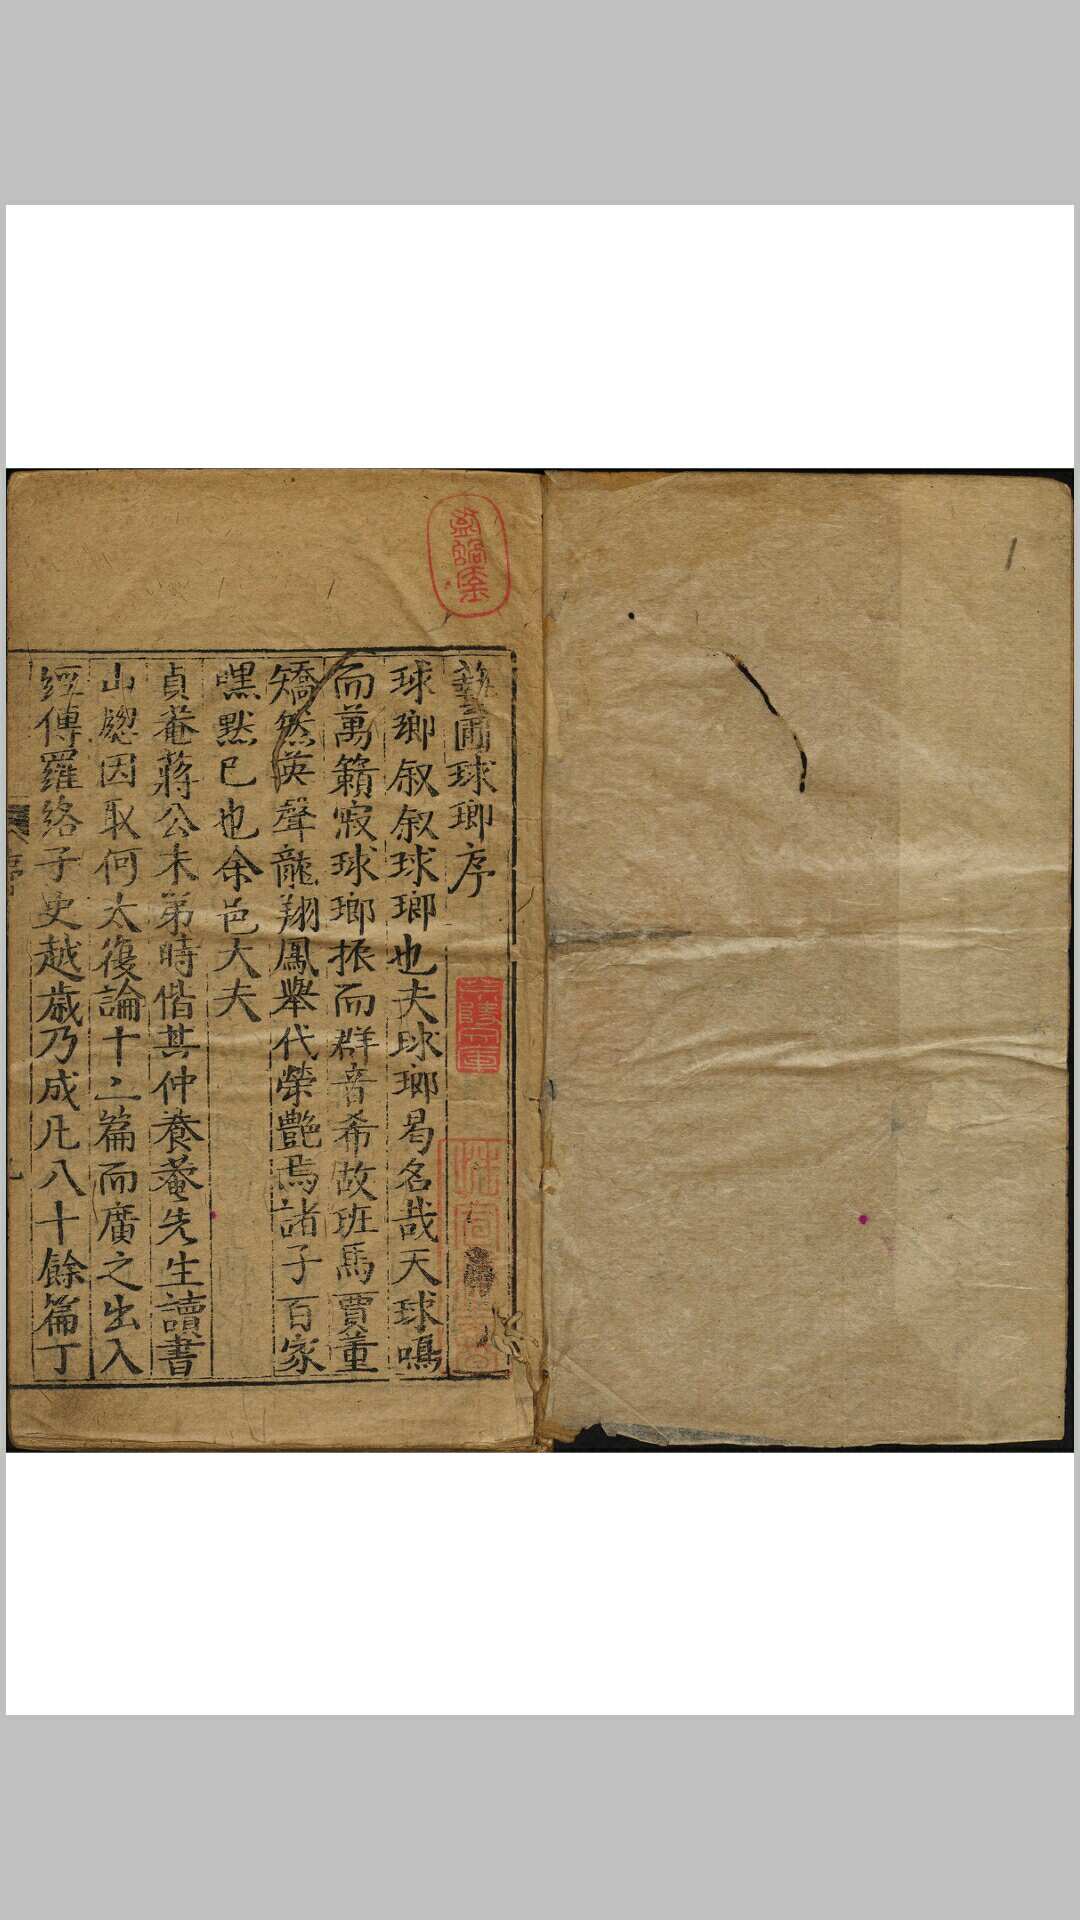 藝圃球瑯序
球瑯叙叙球瑯也夫球瑯曷名哉天球鳴
而萬籟寂球瑯振而群音希故班馬賈董
矯然英聲龍翔鳳舉代榮艶焉諸子百家
嘿默已也余邑大夫
貞菴蔣公未第時偕其仲養菴先生讀書
山窓因取何太復論十二篇而廣之出入
經傳羅络子史越歳乃成凡八十餘篇丁
序